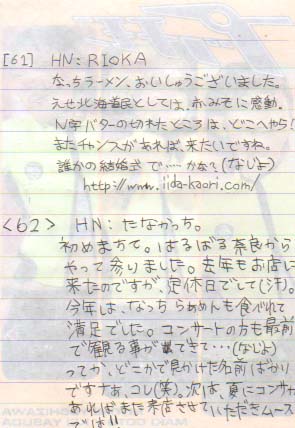 [61] HN: RIOKA
なっちラーメン、おいしゅうございました。
えせ北海道民としては、赤みそに感動。
N字バターの切れたところは、どこへやら!
またチャンスがあれば、来たいですね。
誰かの結婚式で……かな?(なじょ)
http://www.iida-kaori.com/
<62> HN: たなかっち。
初めまちて。はるばる奈良から
やって参りました。去年もお店に
来たのですが、定休日でして(汗)。
今年は、なっちらぁめんも食べれて
満足でした。コンサートの方も最前
で観る事ができて…(なじょ)
ってか、どこかで見かけた名前ばかり
ですなぁ、コレ(笑)。次は、夏にコンサ
あればまた来店させていただきム〜ス
では!!
AWAZIHS
AQUBAY
TOTOO DIAM